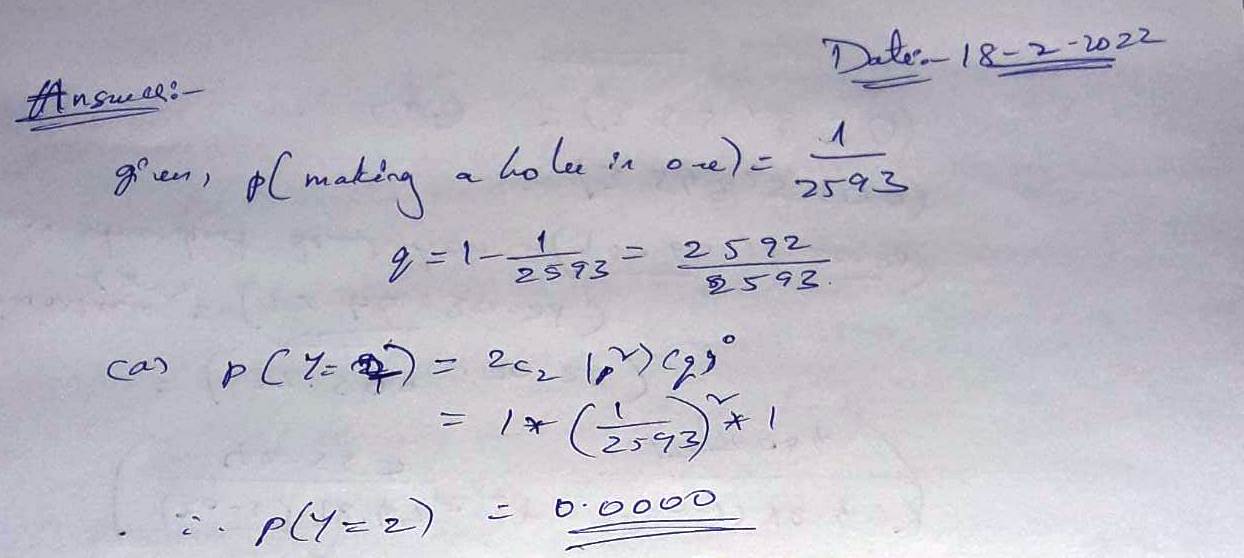 Date:- 18-2-2022
Answer:-
given, p(making a hole in one) = 1/2593
q = 1 - 1/2593 = 2592/2593.
(a) p(Y=2) = 2c₂ (p²) (q)⁰
= 1 * (1/2593)² * 1
∴ p(Y=2) = 0.0000